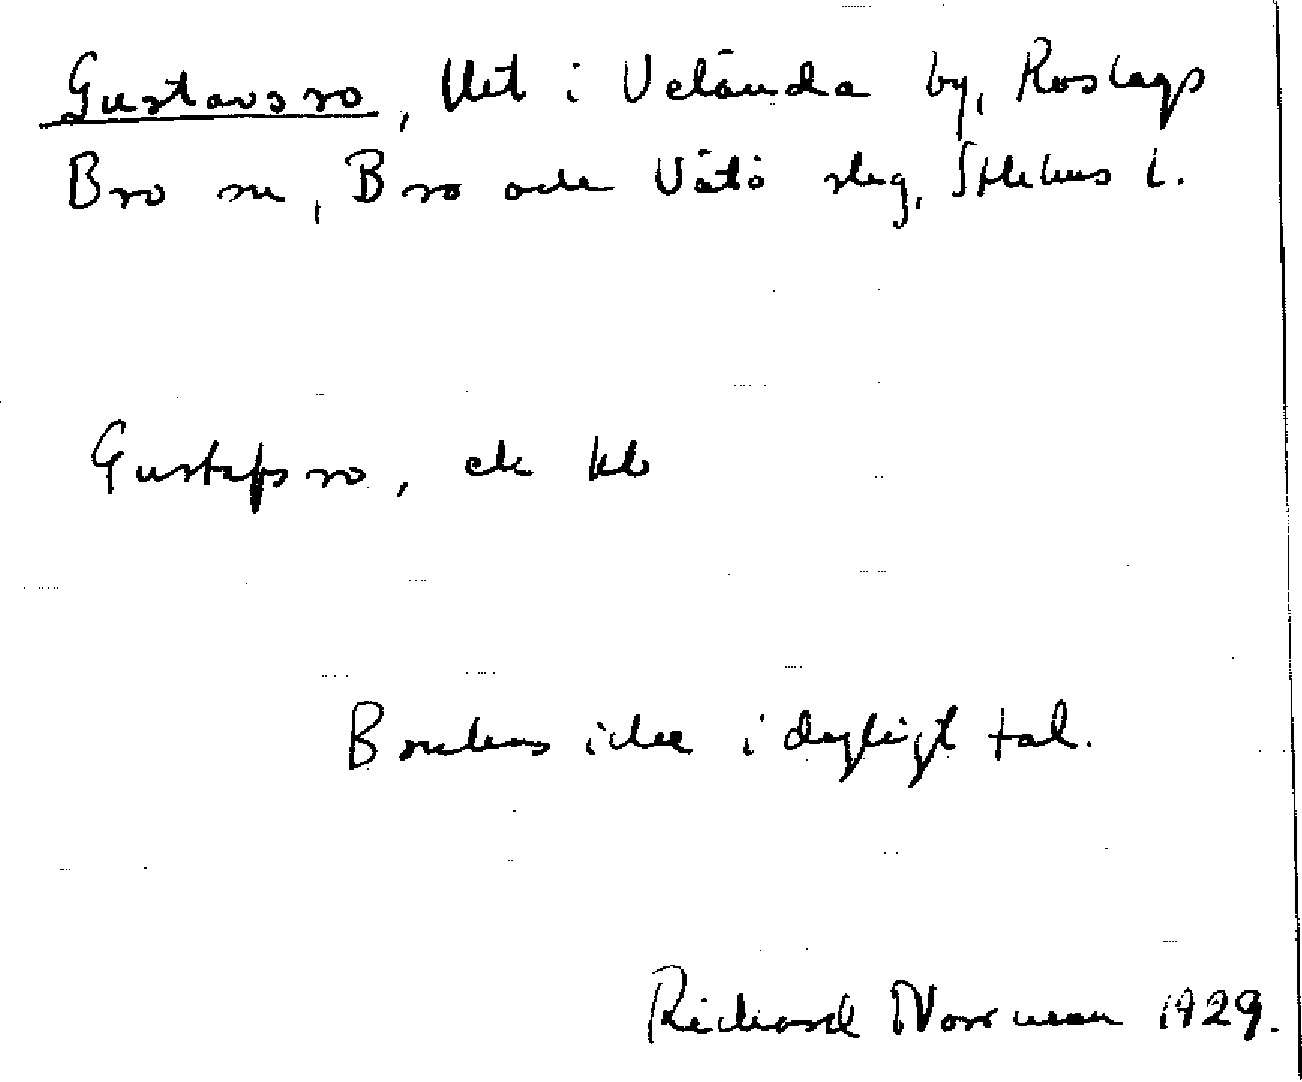 Gustavsro, lht i Velånda by, Roslags
Bro sn, Bro och Vätö slag, Sthlms l.
Gustafsro, ek kb
Brukas icke i dagligt tal.
Richard Norrman 1929.